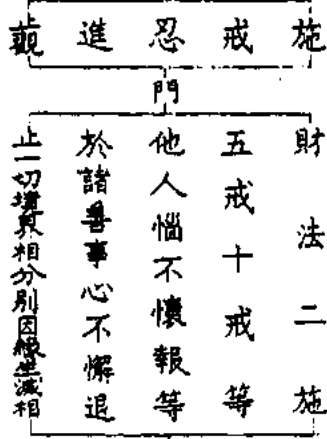 施
戒
忍
進
止觀
門
財法二施
五戒十戒等
他人惱不懷報等
於諸善事心不懈退
止一切境界相分別因緣生滅相